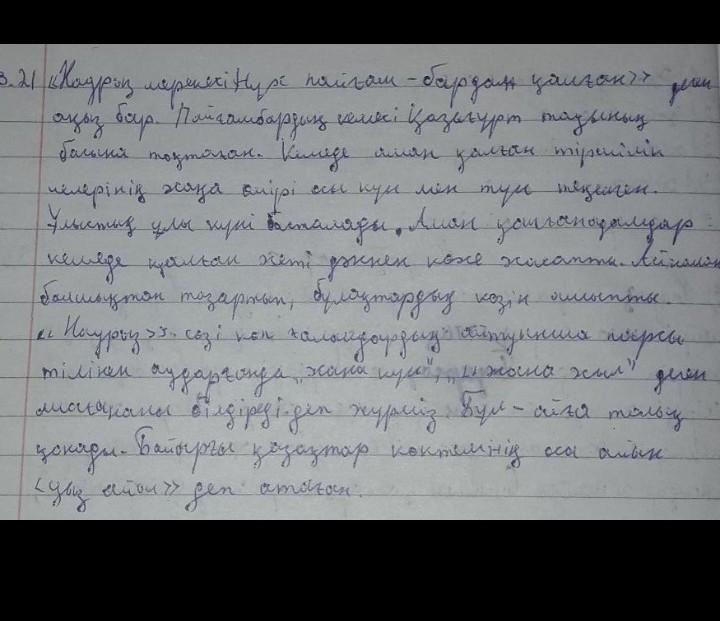 3.21 «Наурыз мерекесі Нұх пайғам-бардан қалған» деген
аңыз бар. Пайғамбардың кемесі Қазығұрт тауының
басына тоқтаған. Кемеде аман қалған тіршілік
иелерінің жаңа өмірі осы күн мен түн теңелген.
Ұлыстың ұлы күні басталады. Аман қалған адамдар
кемеде қалған жеті дәннен көже жасапты. Айналаны
балшықтан тазартып, бұлақтардың көзін ашыпты.
«Наурыз» сөзі көп ғалымдардың айтуынша парсы
тілінен аударғанда „жаңа күн", „жаңа жыл" деген
мағынаны білдіреді деп жүрміз Бұл - айға толық
Байырғы қазақтар көктемнің осы айын
«ұыз айы» деп атаған.